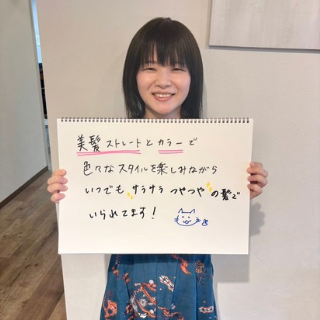 美髪ストレートとカラーで
色々なスタイルを楽しみながら
いつでもサラサラつやつやの髪で
いられてます!